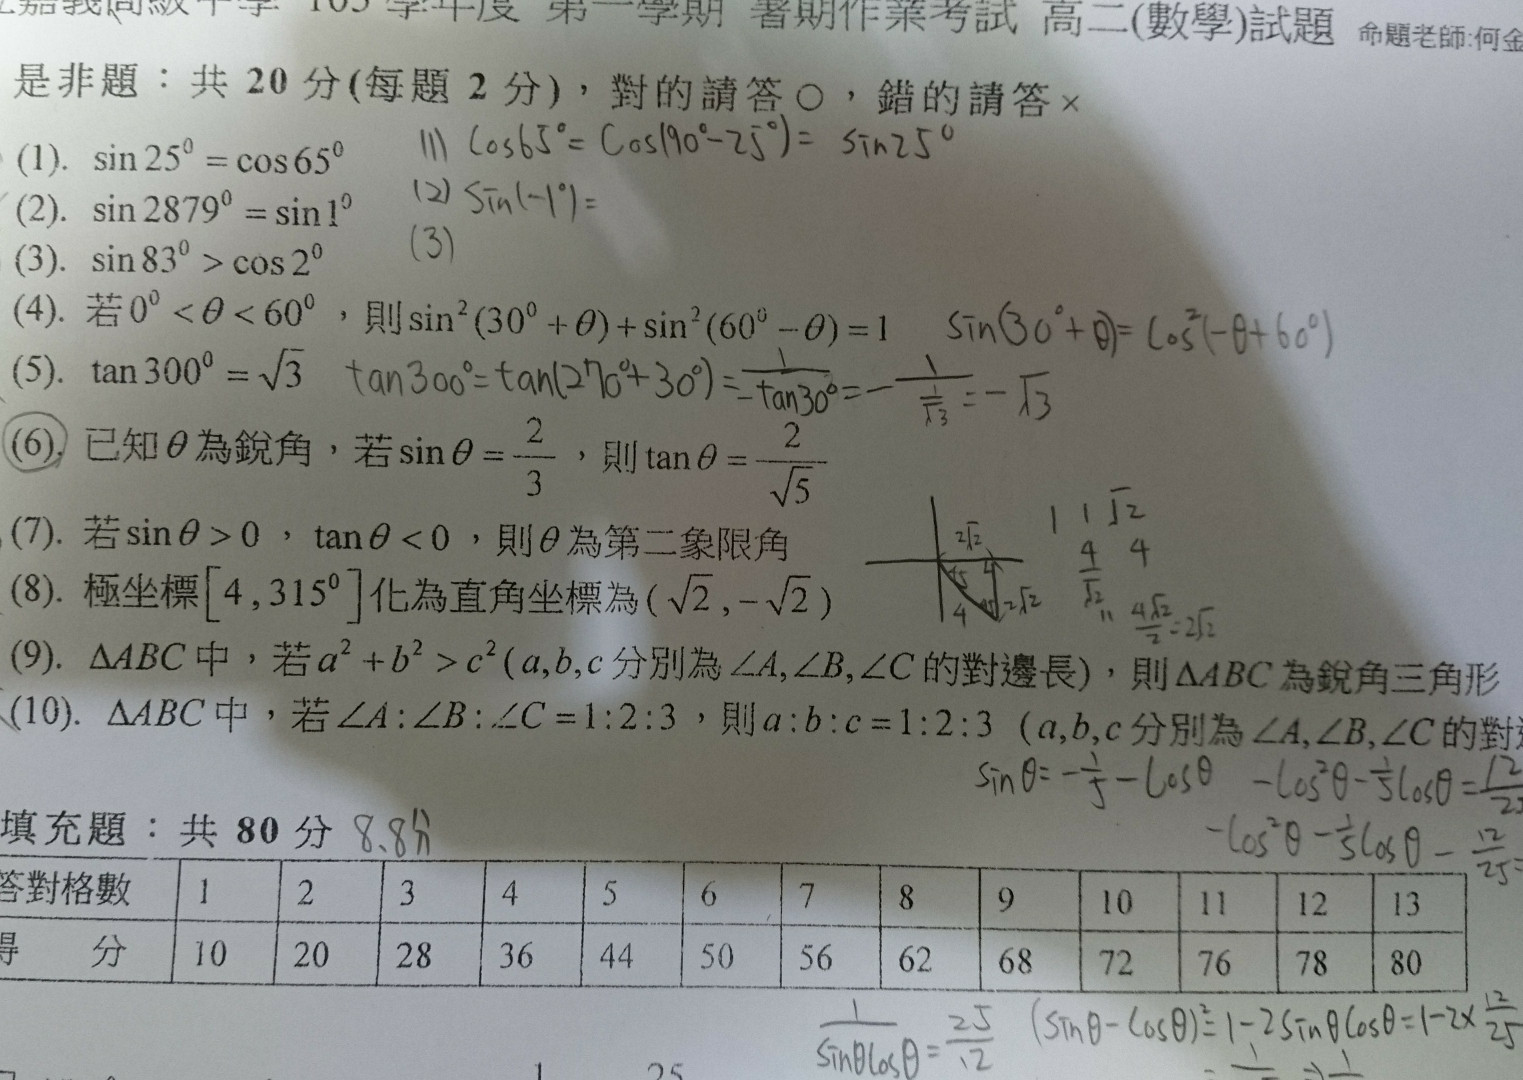 嘉義高級中學 105 學年度 第一學期 暑期作業考試 高二(數學)試題 命題老師:何金
是非題：共 20 分(每題 2 分)，對的請答○，錯的請答×
(1). sin25⁰ = cos65⁰ (1) cos65° = cos(90°-25°) = sin25°
(2). sin2879⁰ = sin1⁰ (2) sin(-1°) =
(3). sin83⁰ > cos2⁰ (3)
(4). 若0⁰ < θ < 60⁰，則sin²(30⁰ + θ) + sin²(60⁰ − θ) = 1 sin(30°+θ) = cos²(-θ+60°)
(5). tan300⁰ = √3 tan300° = tan(270°+30°) = 1/-tan30° = -1/(1/√3) = -√3
(6). 已知θ為銳角，若sinθ = 2/3，則tanθ = 2/√5
(7). 若sinθ > 0，tanθ < 0，則θ為第二象限角
2√2 1 1 √2
4/√2 4
(8). 極坐標[4,315⁰]化為直角坐標為(√2,−√2) 45 4 2√2 " 4√2/2 = 2√2
(9). ΔABC中，若a² + b² > c²(a,b,c分別為∠A,∠B,∠C的對邊長)，則ΔABC為銳角三角形
(10). ΔABC中，若∠A:∠B:∠C = 1:2:3，則a:b:c = 1:2:3 (a,b,c分別為∠A,∠B,∠C的對
sinθ = -1/5 - cosθ -cos²θ - 1/5cosθ = 12/25
-cos²θ - 1/5cosθ - 12/25 =
填充題：共 80 分 8.8分
答對格數 1 2 3 4 5 6 7 8 9 10 11 12 13
得 分 10 20 28 36 44 50 56 62 68 72 76 78 80
1/sinθcosθ = 25/12 (sinθ-cosθ)² = 1-2sinθcosθ = 1-2×12/25
1 25